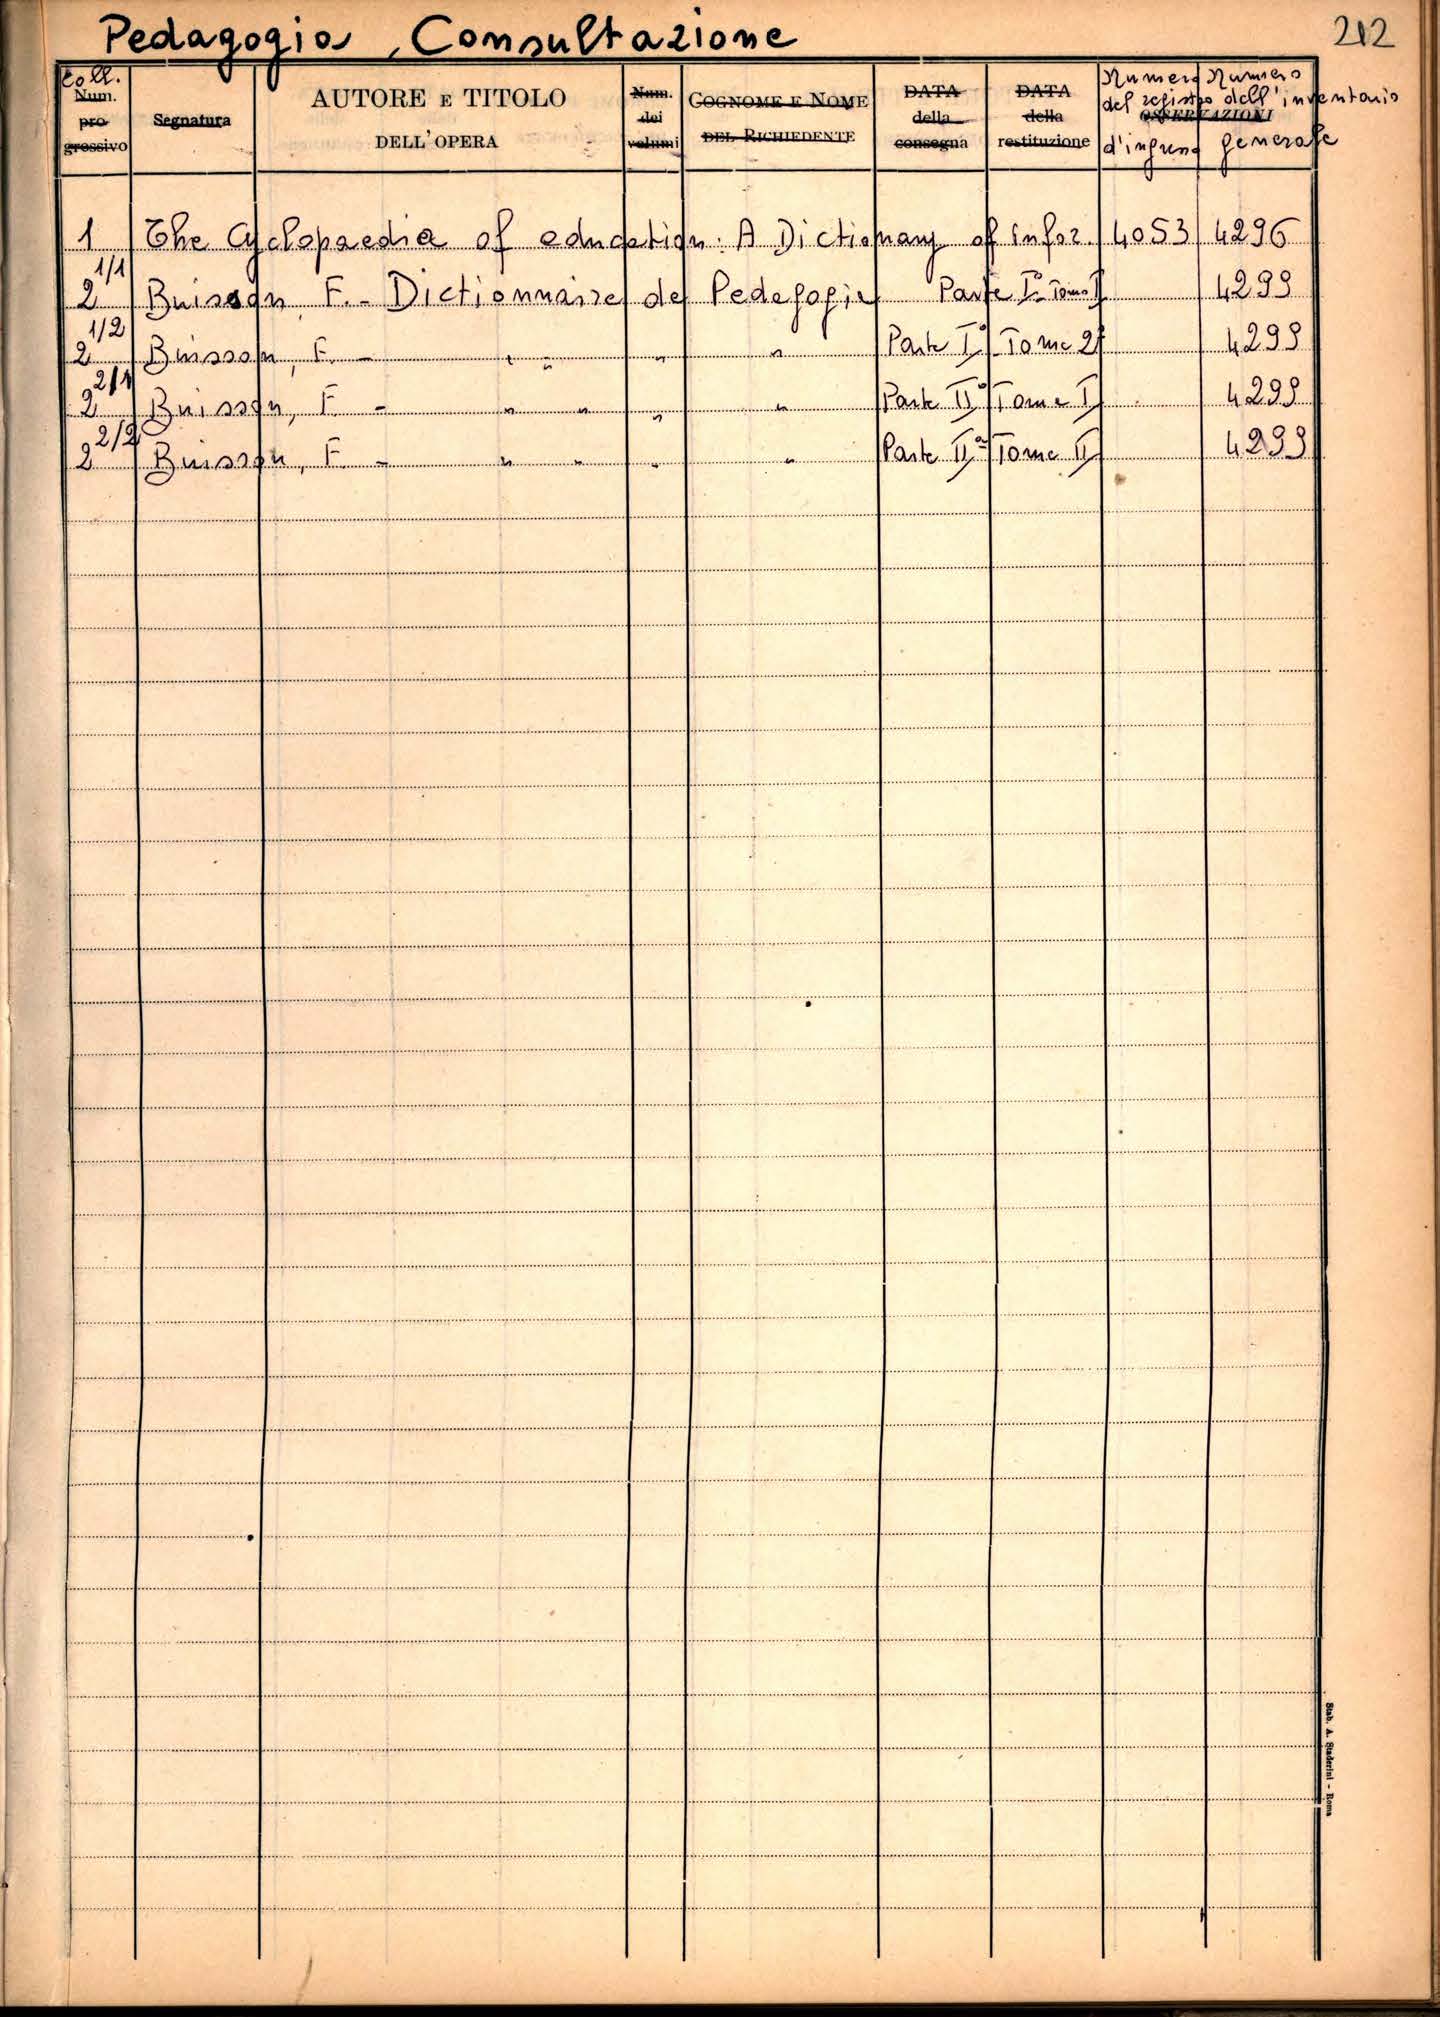 Pedagogia, Consultazione 212
Coll. Num. pro gressivo
Segnatura
AUTORE E TITOLO DELL'OPERA
Num. dei volumi
COGNOME E NOME DEL RICHIEDENTE
DATA della consegna
DATA della restituzione
OSSERVAZIONI
Numero del registro d'ingresso
Numero dell'inventario generale
1 The Cyclopaedia of education: A Dictionary of infor. 4053 4296
2 1/1 Buisson, F. - Dictionnaire de Pedagogie Parte Iª Tomo I 4299
2 1/2 Buisson, F. - " " " " Parte Iª Tomo 2º 4299
2 2/1 Buisson, F. - " " " " Parte IIª Tomo I 4299
2 2/2 Buisson, F. - " " " " Parte IIª Tomo II 4299
Stab. A. Staderini - Roma